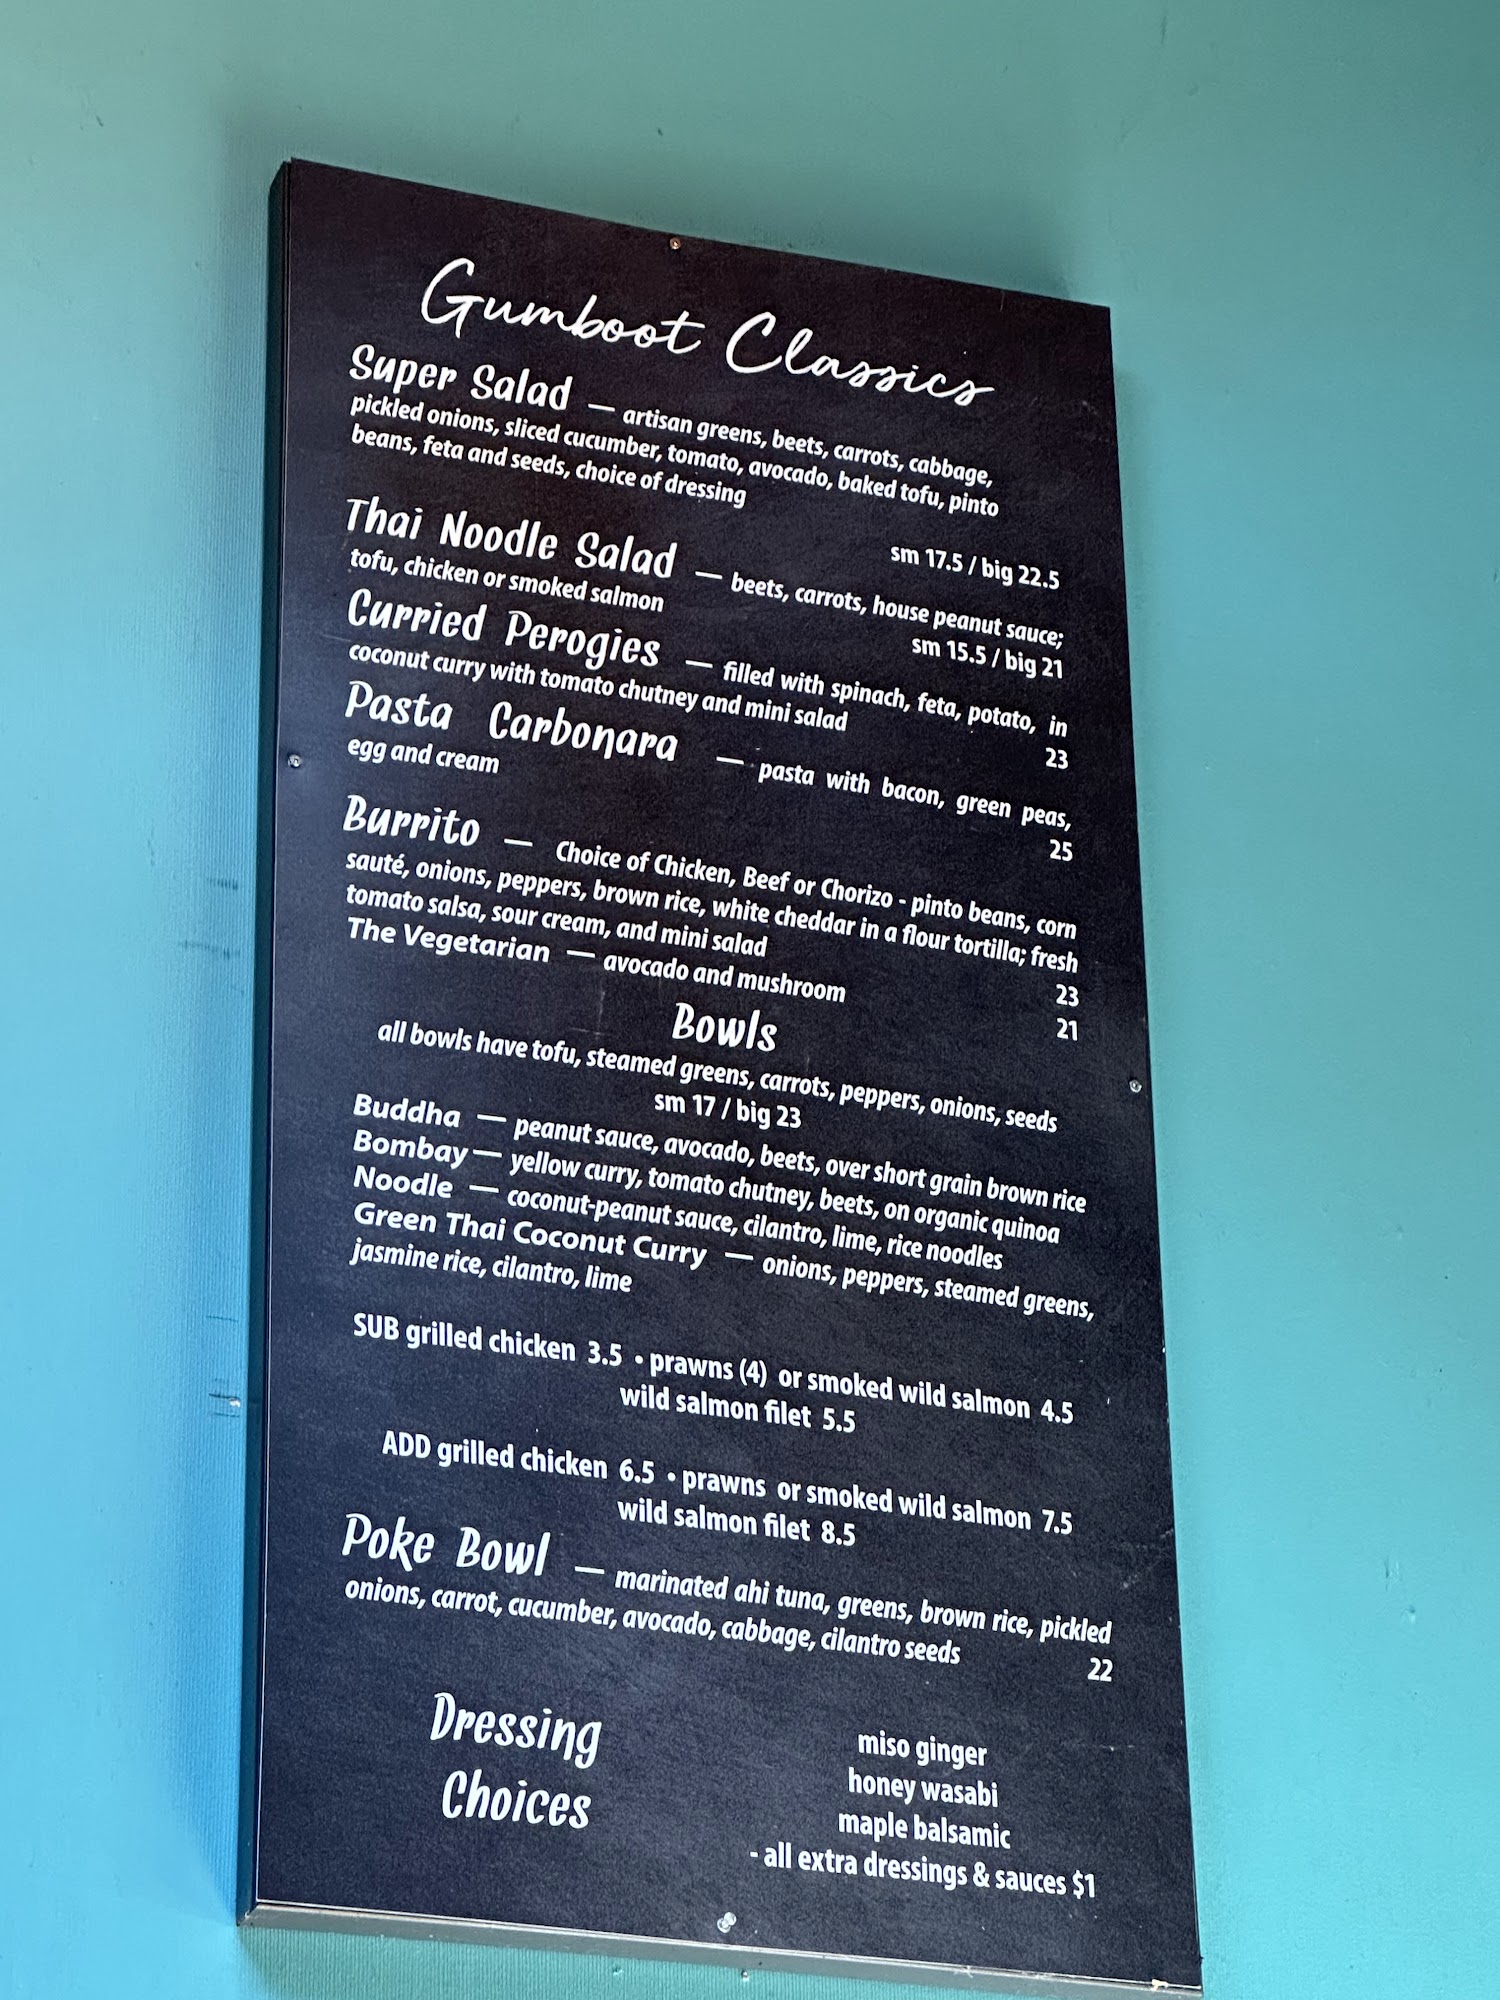 Gumboot Classics
Super Salad — artisan greens, beets, carrots, cabbage,
pickled onions, sliced cucumber, tomato, avocado, baked tofu, pinto
beans, feta and seeds, choice of dressing
sm 17.5 / big 22.5
Thai Noodle Salad — beets, carrots, house peanut sauce;
tofu, chicken or smoked salmon sm 15.5 / big 21
Curried Perogies — filled with spinach, feta, potato, in
coconut curry with tomato chutney and mini salad 23
Pasta Carbonara — pasta with bacon, green peas,
egg and cream 25
Burrito — Choice of Chicken, Beef or Chorizo - pinto beans, corn
sauté, onions, peppers, brown rice, white cheddar in a flour tortilla; fresh
tomato salsa, sour cream, and mini salad 23
The Vegetarian — avocado and mushroom 21
Bowls
all bowls have tofu, steamed greens, carrots, peppers, onions, seeds
sm 17 / big 23
Buddha — peanut sauce, avocado, beets, over short grain brown rice
Bombay — yellow curry, tomato chutney, beets, on organic quinoa
Noodle — coconut-peanut sauce, cilantro, lime, rice noodles
Green Thai Coconut Curry — onions, peppers, steamed greens,
jasmine rice, cilantro, lime
SUB grilled chicken 3.5 • prawns (4) or smoked wild salmon 4.5
wild salmon filet 5.5
ADD grilled chicken 6.5 • prawns or smoked wild salmon 7.5
wild salmon filet 8.5
Poke Bowl — marinated ahi tuna, greens, brown rice, pickled
onions, carrot, cucumber, avocado, cabbage, cilantro seeds 22
Dressing
Choices
miso ginger
honey wasabi
maple balsamic
- all extra dressings & sauces $1